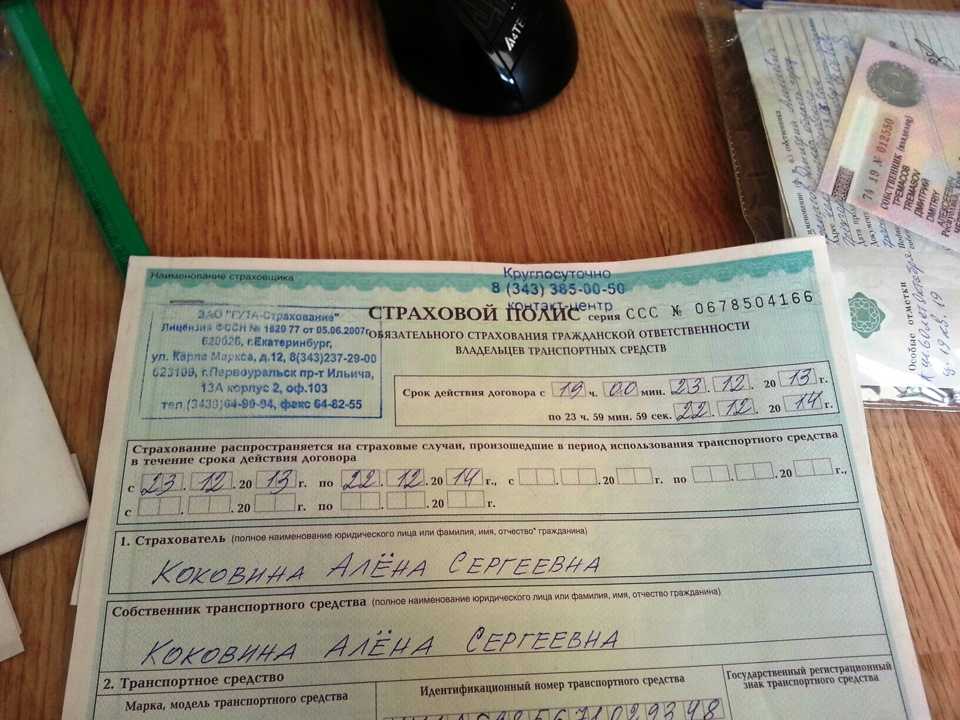 A4TE
Наименование страховщика
Круглосуточно
8 (343) 385-00-50
контакт-центр
ЗАО "ГУТА-Страхование"
Лицензия ФССН № 1820 77 от 05.06.2007г
620026, г.Екатеринбург,
ул. Карла Маркса, д.12, 8(343)237-29-00
623109, г.Первоуральск пр-т Ильича,
13А корпус 2, оф.103
тел.(3439)64-99-94, факс 64-82-55
СТРАХОВОЙ ПОЛИС серия ССС № 0678504166
ОБЯЗАТЕЛЬНОГО СТРАХОВАНИЯ ГРАЖДАНСКОЙ ОТВЕТСТВЕННОСТИ
ВЛАДЕЛЬЦЕВ ТРАНСПОРТНЫХ СРЕДСТВ
Срок действия договора с 19 ч. 00 мин. 23.12.2013 г.
по 23 ч. 59 мин. 59 сек. 22.12.2014 г.
Страхование распространяется на страховые случаи, произошедшие в период использования транспортного средства
в течение срока действия договора
с 23.12.2013 г. по 22.12.2014 г., с . .20 г. по . .20 г.,
с . .20 г. по . .20 г.
1. Страхователь (полное наименование юридического лица или фамилия, имя, отчество* гражданина)
КОКОВИНА АЛЁНА СЕРГЕЕВНА
Собственник транспортного средства (полное наименование юридического лица или фамилия, имя, отчество гражданина)
КОКОВИНА АЛЁНА СЕРГЕЕВНА
2. Транспортное средство
Марка, модель транспортного средства
Идентификационный номер транспортного средства
Государственный регистрационный
знак транспортного средства
74 19 № 012550
СОБСТВЕННИК (владелец)
ТРЕМАСОВ
TREMASOV
ДМИТРИЙ
DMITRIY
АЛЕКСЕЕВИЧ
Особые отметки